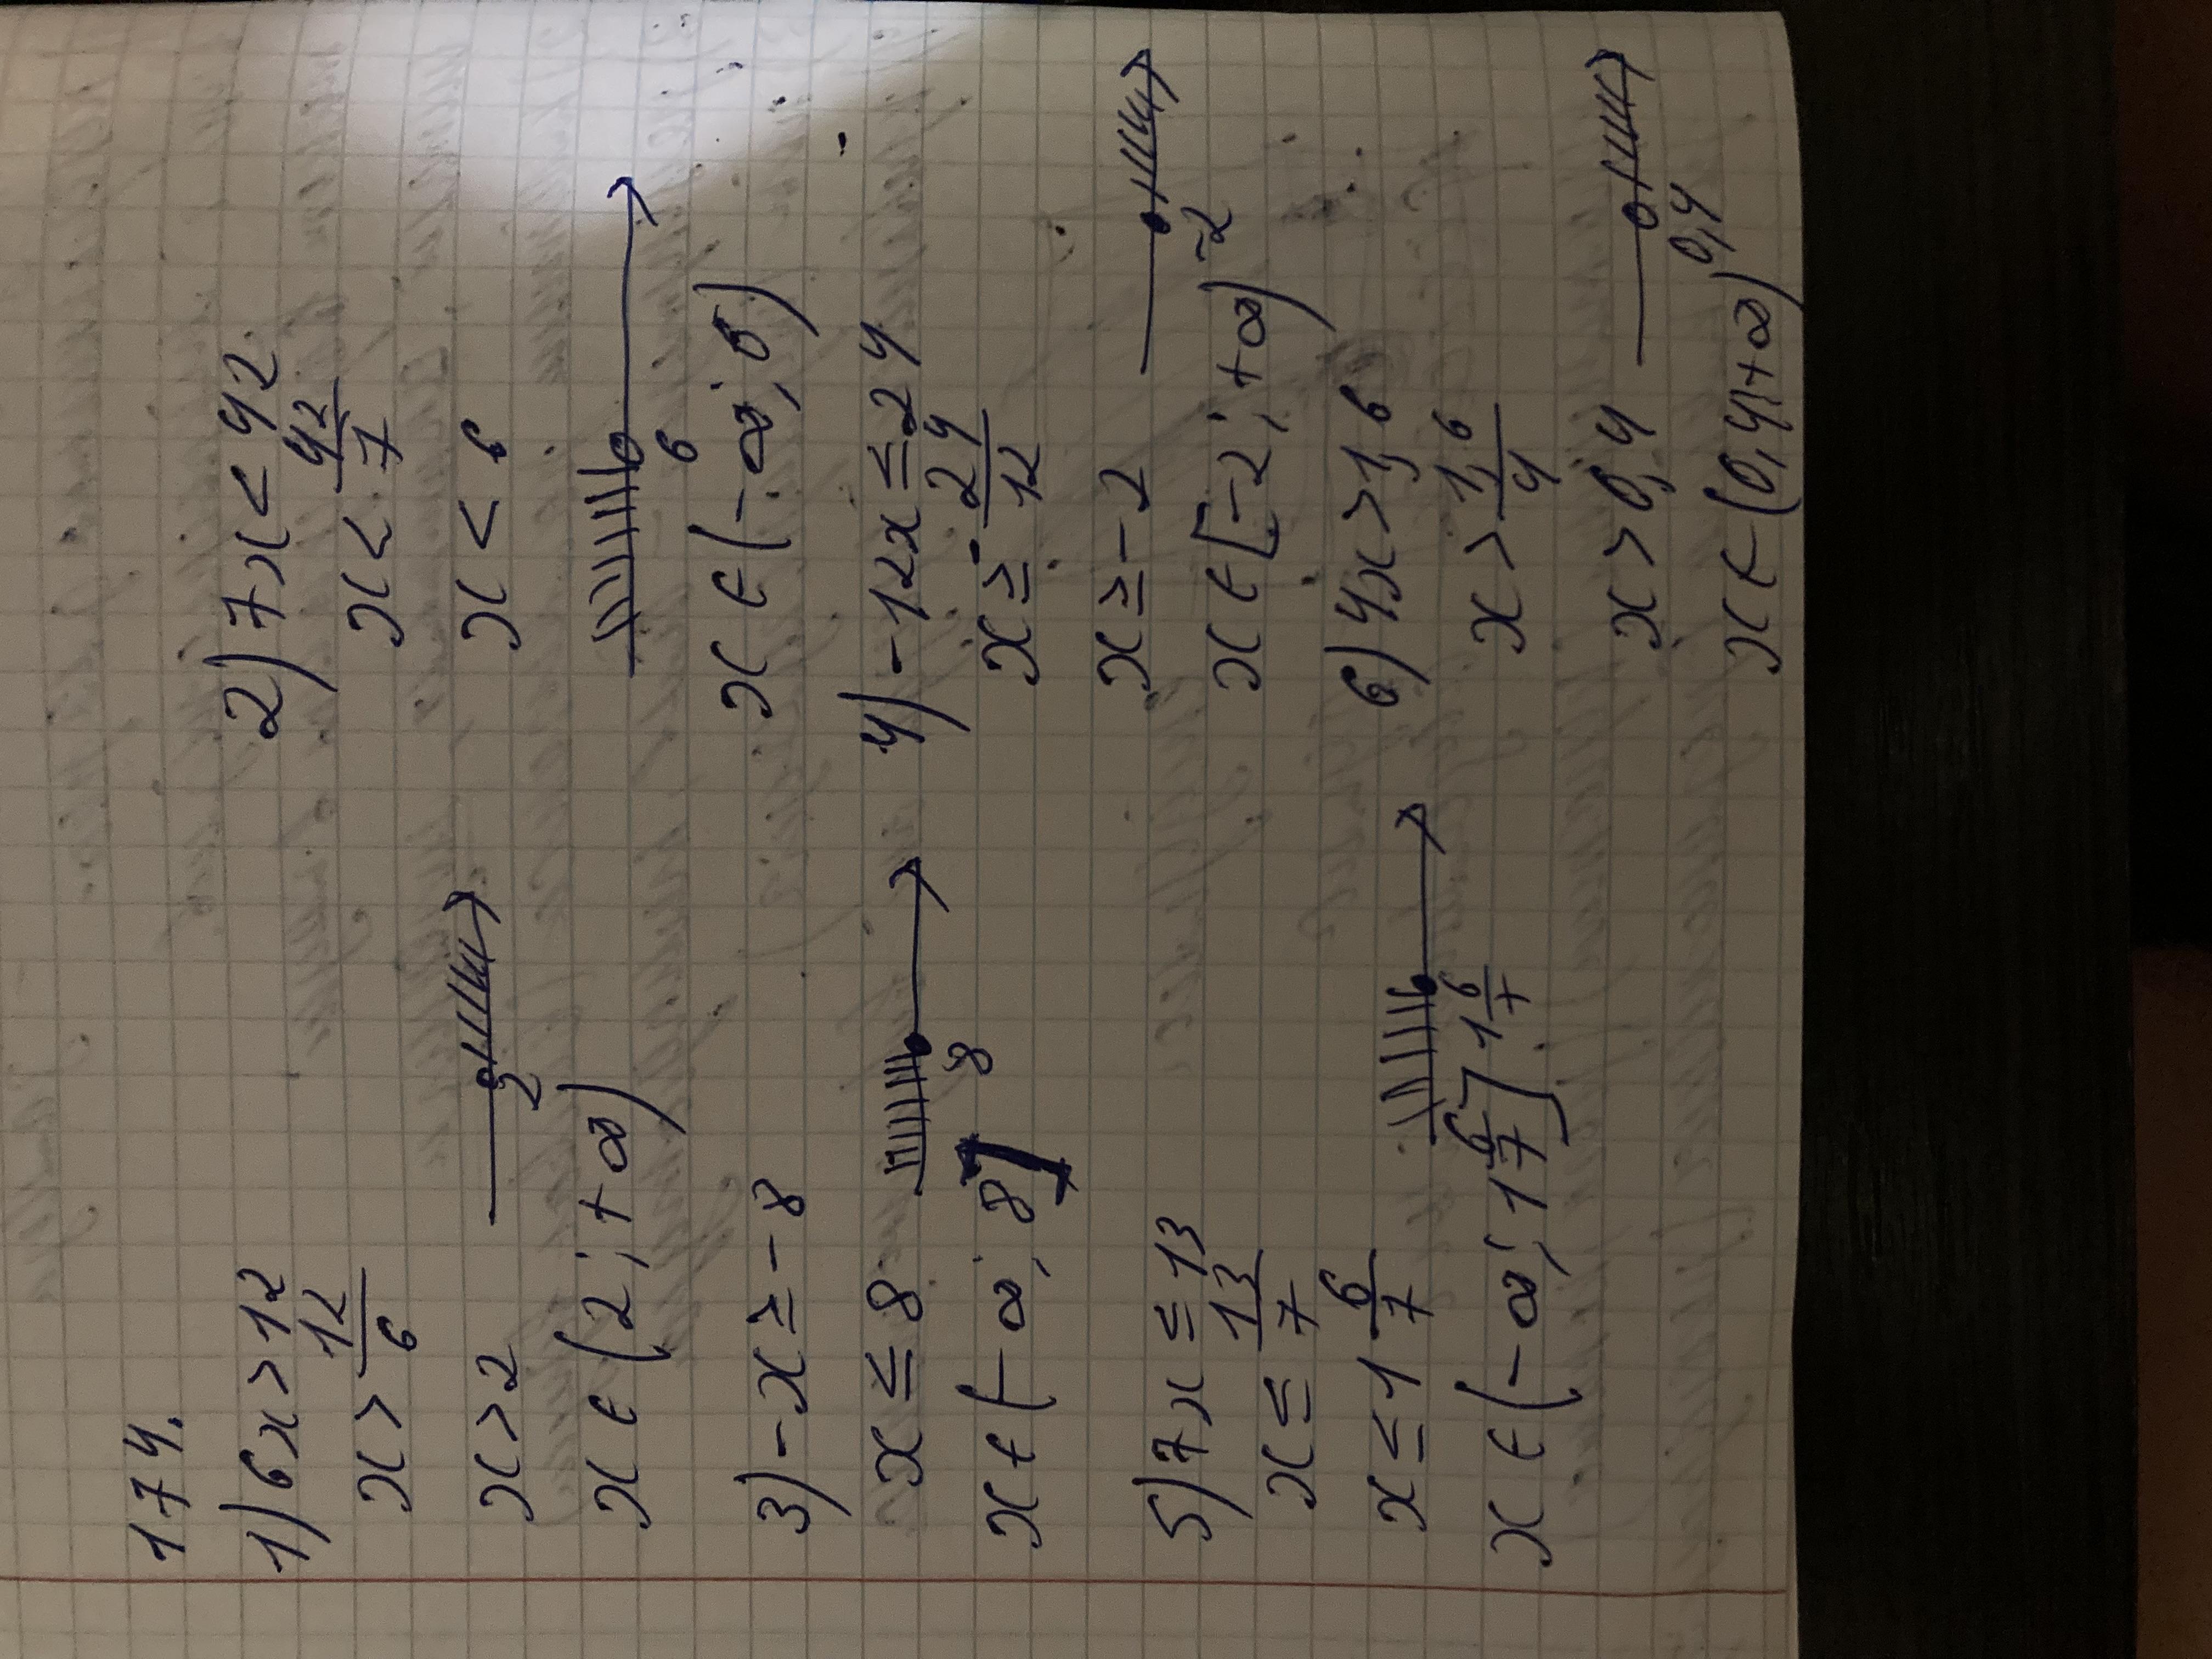 174.
1) 6x > 12
x > 12/6
x > 2
2
x ∈ (2; +∞)
2) 7x < 42
x < 42/7
x < 6
6
x ∈ (-∞; 6)
3) -x ≥ -8
x ≤ 8
8
x ∈ (-∞; 8]
4) -12x ≤ 24
x ≥ -24/12
x ≥ -2
-2
x ∈ [-2; +∞)
5) 7x ≤ 13
x ≤ 13/7
x ≤ 1 6/7
1 6/7
x ∈ (-∞; 1 6/7]
6) 4x > 1,6
x > 1,6/4
x > 0,4
0,4
x ∈ (0,4; +∞)